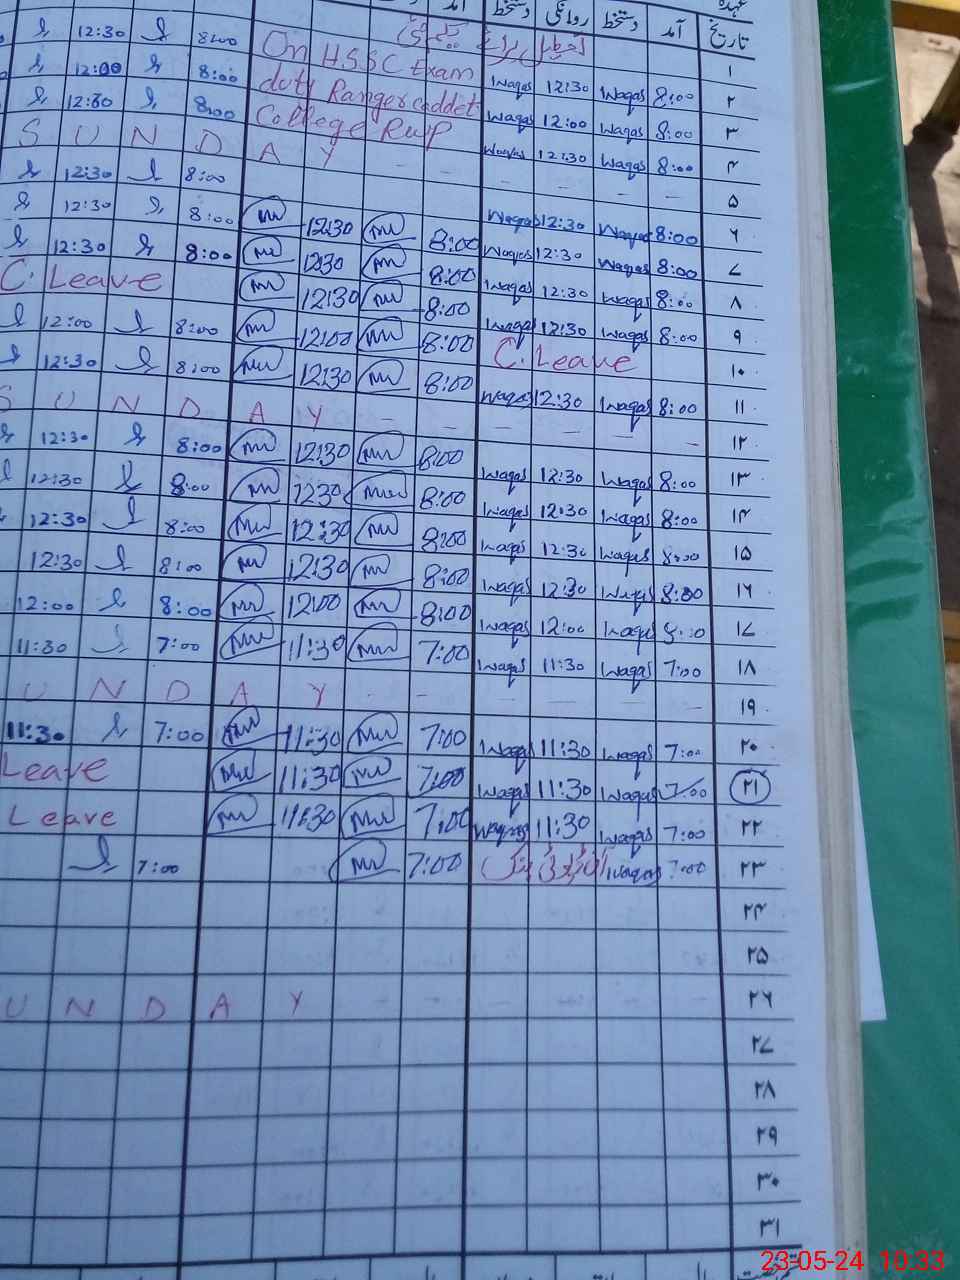 عہدہ
تاریخ آمد دستخط روانگی دستخط آمد
۱
12:30 8:00 On HSSC Exam Waqas 12:30 Waqas 8:00 ۲
12:00 8:00 duty Ranger caddet Waqas 12:00 Waqas 8:00 ۳
12:30 8:00 College Rwp Waqas 12:30 Waqas 8:00 ۴
S U N D A Y - - - - - - ۵
12:30 8:00 Waqas 12:30 Waqas 8:00 ۶
12:30 8:00 12:30 8:00 Waqas 12:30 Waqas 8:00 ۷
12:30 8:00 12:30 8:00 Waqas 12:30 Waqas 8:00 ۸
C. Leave 12:30 8:00 Waqas 12:30 Waqas 8:00 ۹
12:00 8:00 12:00 8:00 C. Leave ۱۰
12:30 8:00 12:30 8:00 Waqas 12:30 Waqas 8:00 ۱۱
S U N D A Y - - - - - - ۱۲
12:30 8:00 12:30 8:00 Waqas 12:30 Waqas 8:00 ۱۳
12:30 8:00 12:30 8:00 Waqas 12:30 Waqas 8:00 ۱۴
12:30 8:00 12:30 8:00 Waqas 12:30 Waqas 8:00 ۱۵
12:30 8:00 12:30 8:00 Waqas 12:30 Waqas 8:00 ۱۶
12:00 8:00 12:00 8:00 Waqas 12:00 Waqas 8:00 ۱۷
11:30 7:00 11:30 7:00 Waqas 11:30 Waqas 7:00 ۱۸
U N D A Y - - - - - - ۱۹
11:30 7:00 11:30 7:00 Waqas 11:30 Waqas 7:00 ۲۰
Leave 11:30 7:00 Waqas 11:30 Waqas 7:00 ۲۱
Leave 11:30 7:00 Waqas 11:30 Waqas 7:00 ۲۲
7:00 7:00 Waqas 7:00 ۲۳
۲۴
۲۵
U N D A Y - - - - - - ۲۶
۲۷
۲۸
۲۹
۳۰
۳۱
23-05-24 10:33